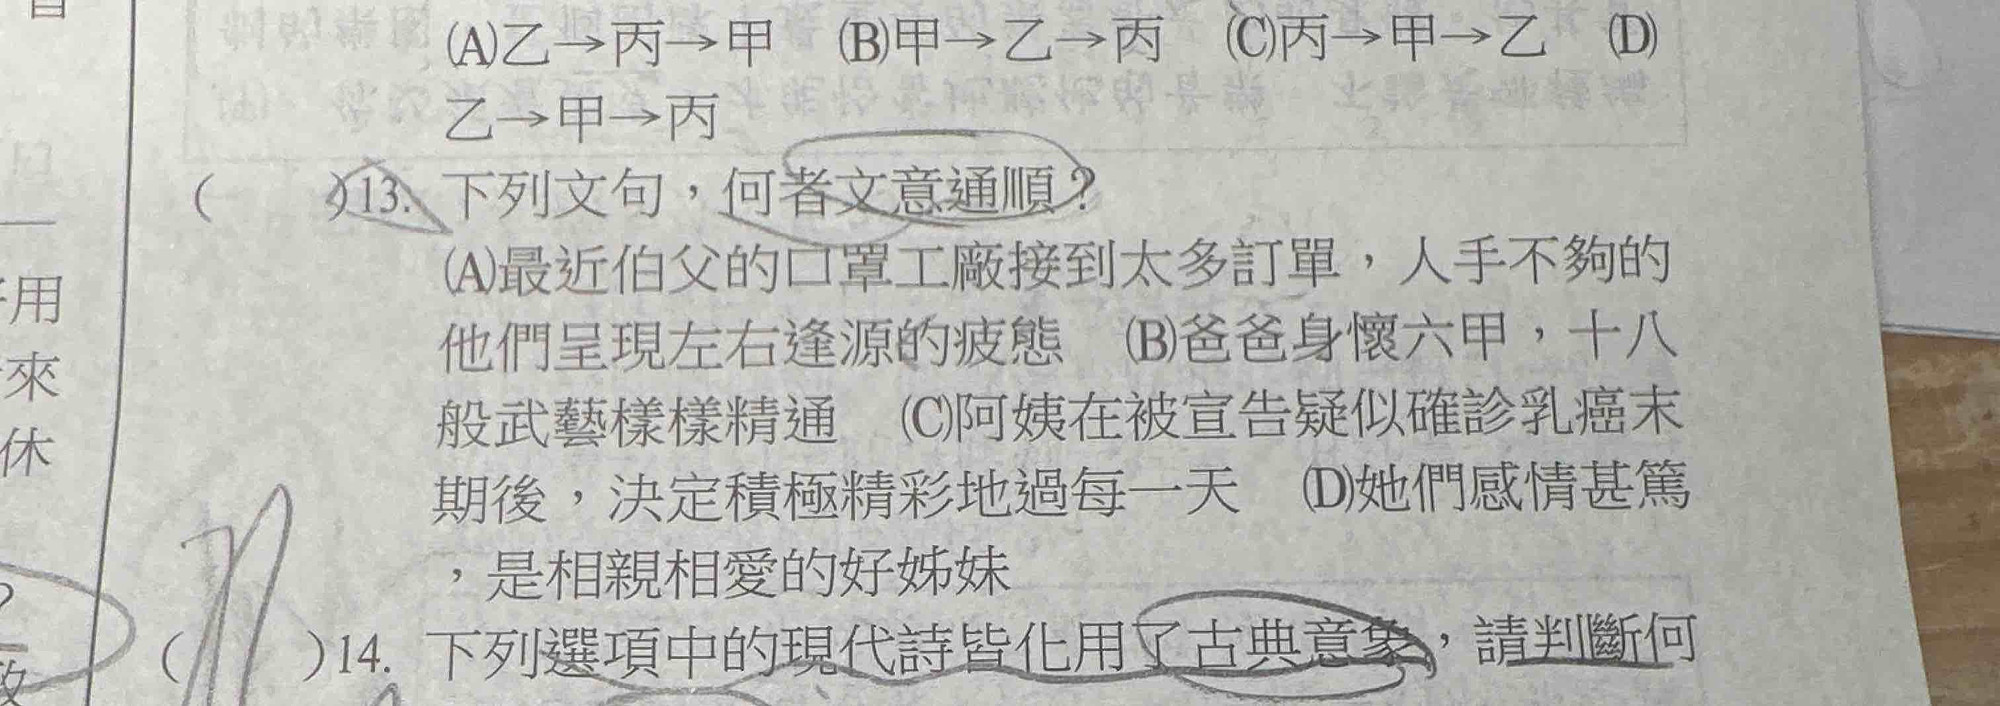 (A)乙→丙→甲 (B)甲→乙→丙 (C)丙→甲→乙 (D)
乙→甲→丙
( )13. 下列文句,何者文意通順?
(A)最近伯父的口罩工廠接到太多訂單,人手不夠的
用
他們呈現左右逢源的疲態 (B)爸爸身懷六甲,十八
來
般武藝樣樣精通 (C)阿姨在被宣告疑似確診乳癌末
休
期後,決定積極精彩地過每一天 (D)她們感情甚篤
,是相親相愛的好姊妹
?
( )14. 下列選項中的現代詩皆化用了古典意象,請判斷何